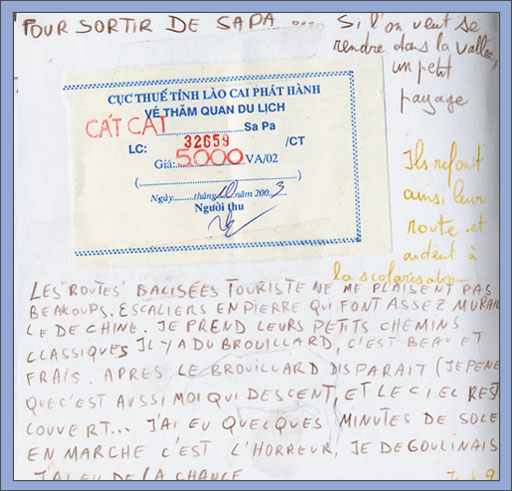 POUR SORTIR DE SAPA ....
Si l'on veut se
rendre dans la vallée,
un petit
payage
CỤC THUẾ TỈNH LÀO CAI PHÁT HÀNH
VÉ THĂM QUAN DU LỊCH
CÁT CÁT Sa Pa
LC: 32659 /CT
Giá: 5000 VA/02
(....................)
Ngày......tháng 10 năm 2003
Người thu
Ils refont
ainsi leur
route et
aident à
la scolarisation
LES "ROUTES" BALISÉES TOURISTE NE ME PLAISENT PAS
BEAKOUPS. ESCALIERS EN PIERRE QUI FONT ASSEZ MURAIL
LE DE CHINE. JE PREND LEURS PETITS CHEMINS
CLASSIQUES IL Y A DU BROUILLARD, C'EST BEAU ET
FRAIS. APRES LE BROUILLARD DISPARAIT (JE PENE
QUE C'EST AUSSI MOI QUI DESCENT, ET LE CIEL REST
COUVERT... J'AI EU QUECQUES MINUTES DE SOLE
EN MARCHE C'EST L'HORREUR, JE DEGOULINAIS
J'AI EU DE LA CHANCE